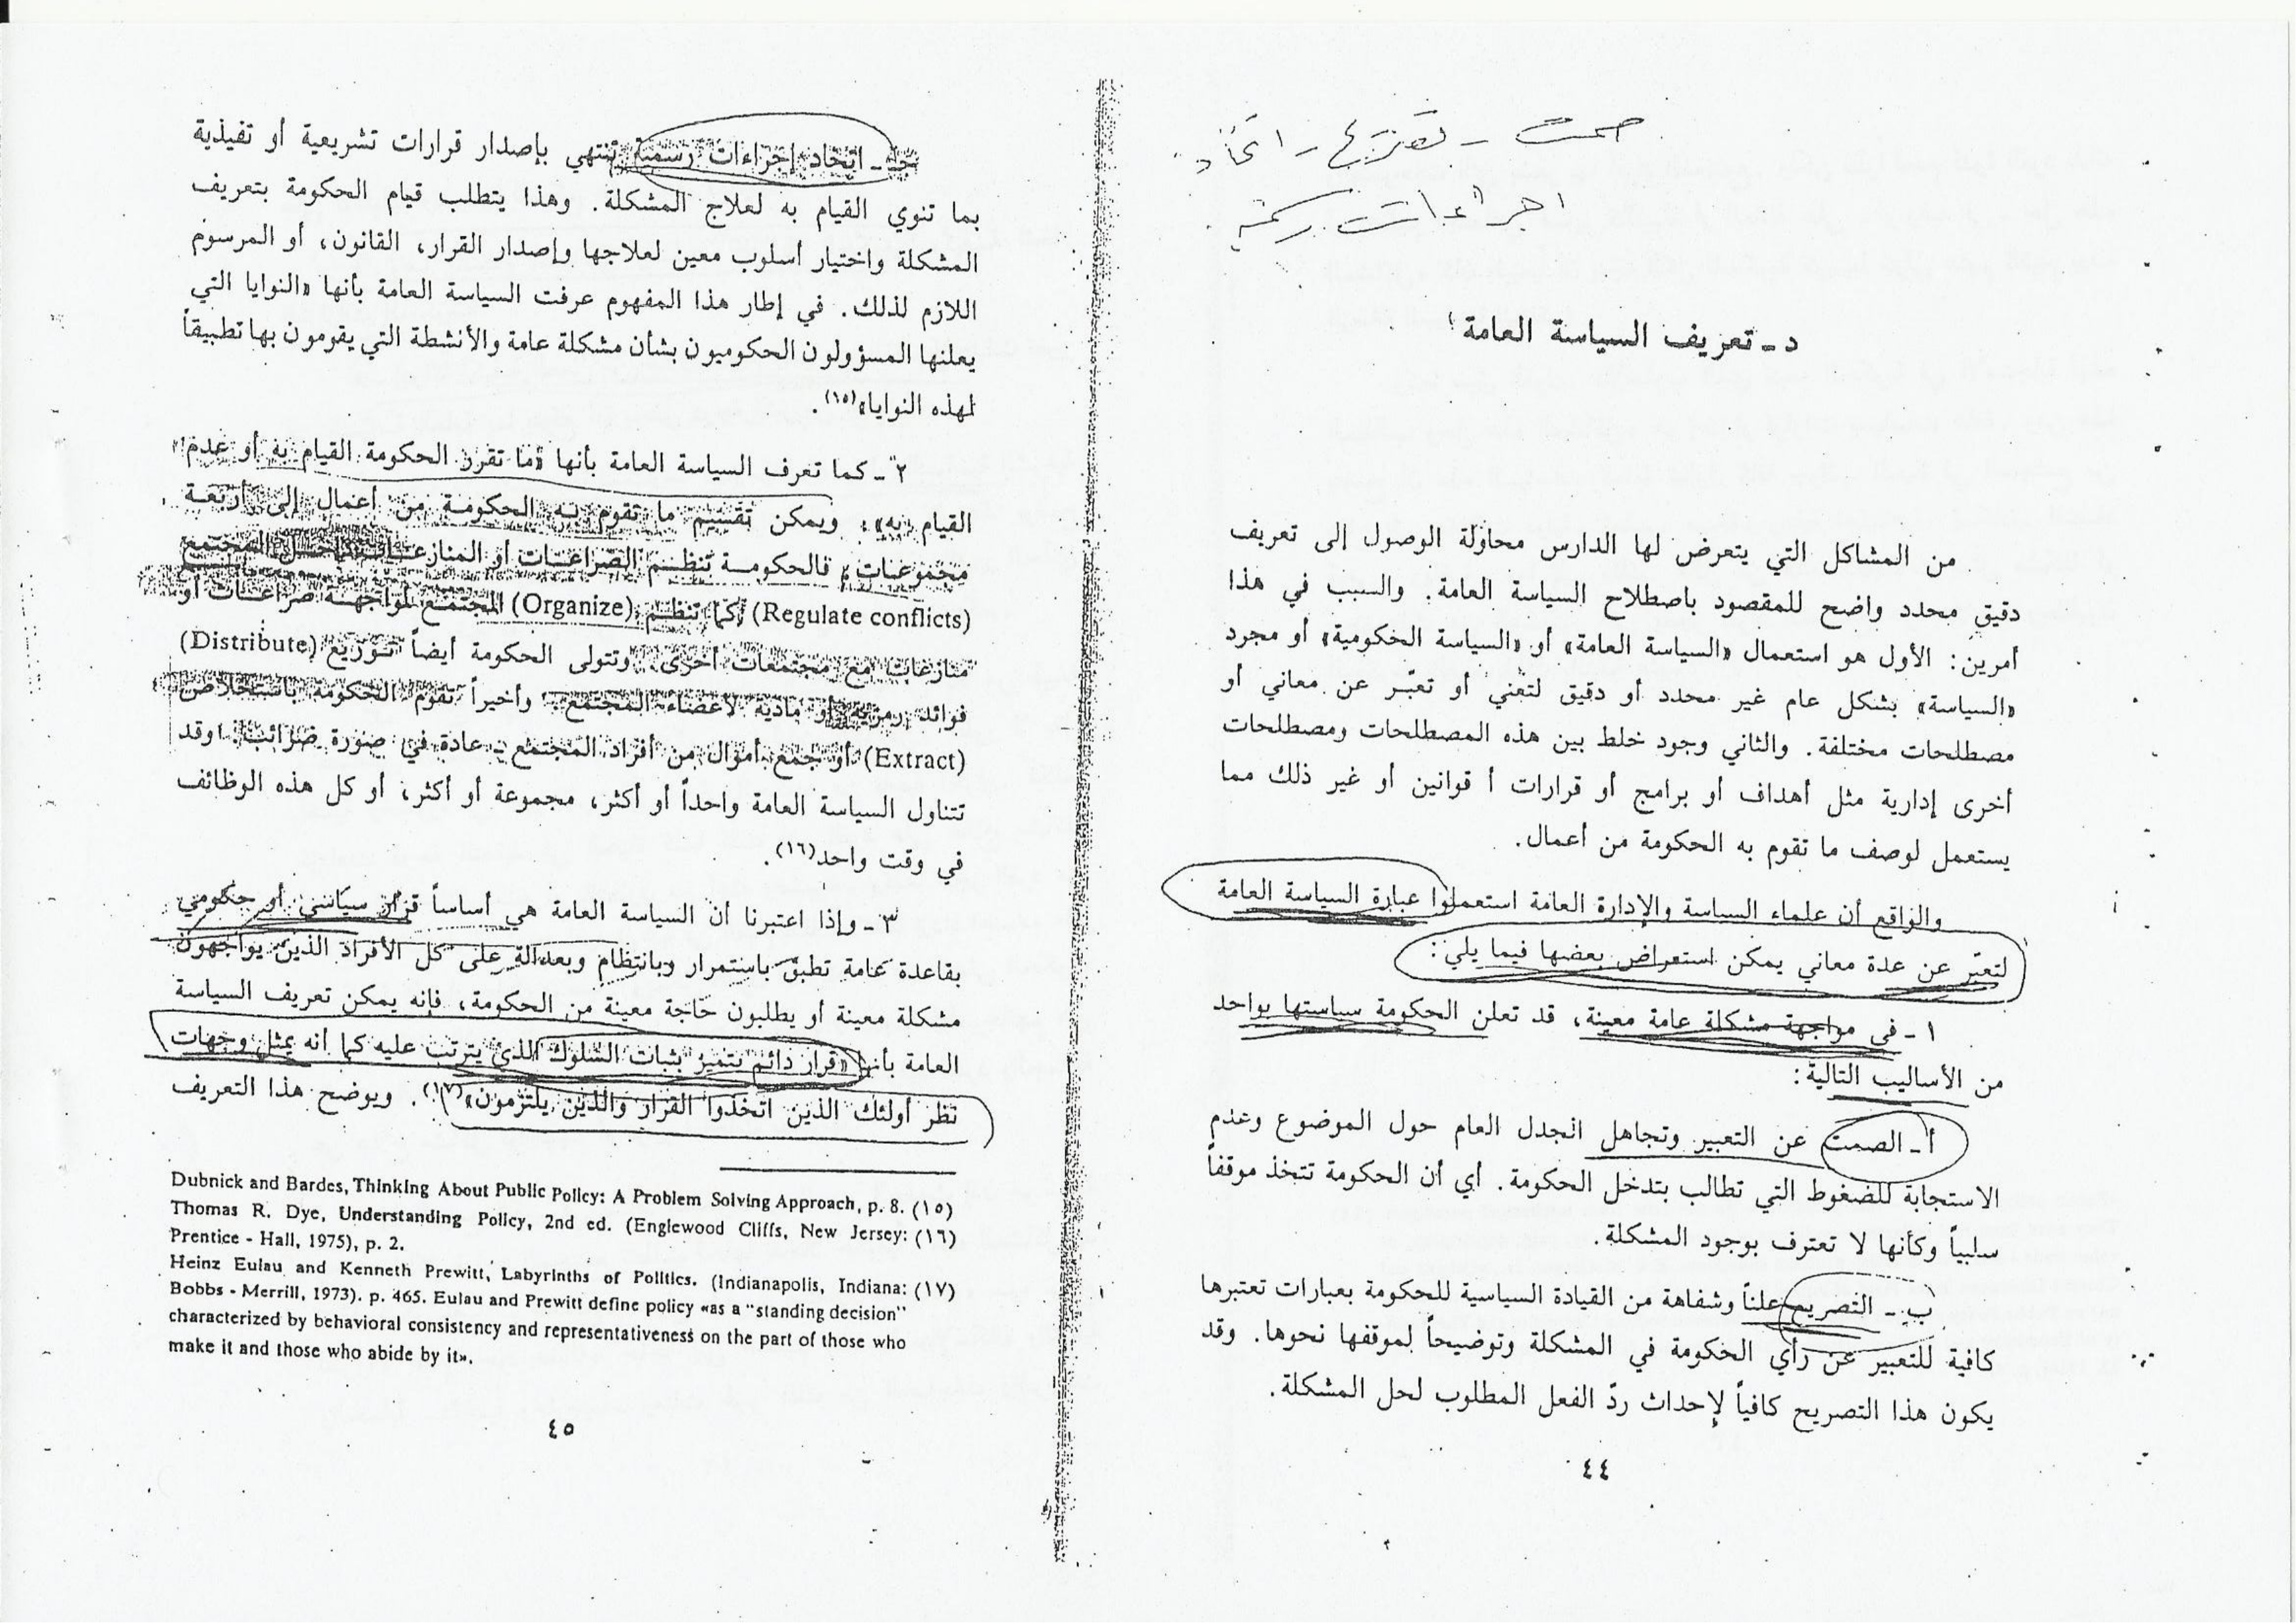 صمت - تصريح - اتخاذ
اجراءات رسمية
د ـ تعريف السياسة العامة
من المشاكل التي يتعرض لها الدارس محاولة الوصول إلى تعريف
دقيق محدد واضح للمقصود باصطلاح السياسة العامة. والسبب في هذا
أمرين: الأول هو استعمال «السياسة العامة» أو «السياسة الحكومية» أو مجرد
«السياسة» بشكل عام غير محدد أو دقيق لتعني أو تعبّر عن معاني أو
مصطلحات مختلفة. والثاني وجود خلط بين هذه المصطلحات ومصطلحات
أخرى إدارية مثل أهداف أو برامج أو قرارات أ قوانين أو غير ذلك مما
يستعمل لوصف ما تقوم به الحكومة من أعمال.
والواقع أن علماء السياسة والإدارة العامة استعملوا عبارة السياسة العامة
لتعبّر عن عدة معاني يمكن استعراض بعضها فيما يلي:
١ ـ في مواجهة مشكلة عامة معينة، قد تعلن الحكومة سياستها بواحد
من الأساليب التالية:
أ ـ الصمت عن التعبير وتجاهل الجدل العام حول الموضوع وعدم
الاستجابة للضغوط التي تطالب بتدخل الحكومة. أي أن الحكومة تتخذ موقفاً
سلبياً وكأنها لا تعترف بوجود المشكلة.
ب ـ التصريح علناً وشفاهة من القيادة السياسية للحكومة بعبارات تعتبرها
كافية للتعبير عن رأي الحكومة في المشكلة وتوضيحاً لموقفها نحوها. وقد
يكون هذا التصريح كافياً لإحداث ردّ الفعل المطلوب لحل المشكلة.
٤٤
جـ ـ اتخاذ إجراءات رسمية تنتهي بإصدار قرارات تشريعية أو تفيذية
بما تنوي القيام به لعلاج المشكلة. وهذا يتطلب قيام الحكومة بتعريف
المشكلة واختيار أسلوب معين لعلاجها وإصدار القرار، القانون، أو المرسوم
اللازم لذلك. في إطار هذا المفهوم عرفت السياسة العامة بأنها «النوايا التي
يعلنها المسؤولون الحكوميون بشأن مشكلة عامة والأنشطة التي يقومون بها تطبيقاً
لهذه النوايا»(١٥).
٢ ـ كما تعرف السياسة العامة بأنها «ما تقرر الحكومة القيام به أو عدم
القيام به». ويمكن تقسيم ما تقوم به الحكومة من أعمال إلى أربعة
مجموعات، فالحكومة تنظم الصراعات أو المنازعات داخل المجتمع
(Regulate conflicts) كما تنظم (Organize) المجتمع لمواجهة صراعات أو
منازعات مع مجتمعات أخرى. وتتولى الحكومة أيضاً توزيع (Distribute)
فوائد رمزية أو مادية لأعضاء المجتمع. وأخيراً تقوم الحكومة باستخلاص
(Extract) أو جمع أموال من أفراد المجتمع ـ عادة في صورة ضرائب. وقد
تتناول السياسة العامة واحداً أو أكثر، مجموعة أو أكثر، أو كل هذه الوظائف
في وقت واحد(١٦).
٣ ـ وإذا اعتبرنا أن السياسة العامة هي أساساً قرار سياسي أو حكومي
بقاعدة عامة تطبق باستمرار وبانتظام وبعدالة على كل الأفراد الذين يواجهون
مشكلة معينة أو يطلبون حاجة معينة من الحكومة، فإنه يمكن تعريف السياسة
العامة بأنها «قرار دائم يتميز بثبات السلوك الذي يترتب عليه كما أنه يمثل وجهات
نظر أولئك الذين اتخذوا القرار والذين يلتزمون»(١٧). ويوضح هذا التعريف
Dubnick and Bardes, Thinking About Public Policy: A Problem Solving Approach, p. 8. (١٥)
Thomas R. Dye, Understanding Policy, 2nd ed. (Englewood Cliffs, New Jersey: (١٦)
Prentice - Hall, 1975), p. 2.
Heinz Eulau and Kenneth Prewitt, Labyrinths of Politics. (Indianapolis, Indiana: (١٧)
Bobbs - Merrill, 1973). p. 465. Eulau and Prewitt define policy «as a "standing decision"
characterized by behavioral consistency and representativeness on the part of those who
make it and those who abide by it».
٤٥